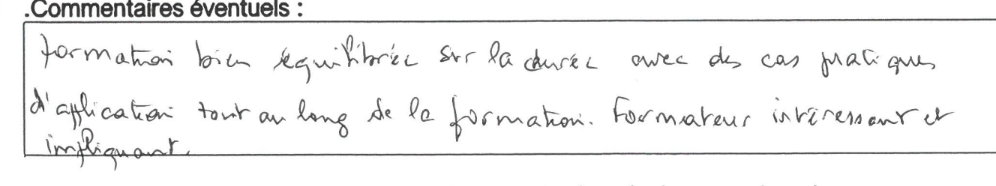 .Commentaires éventuels :
formation bien équilibrée sur la durée avec des cas pratiques
d'application tout au long de la formation. Formateur intéressant et
impliquant.